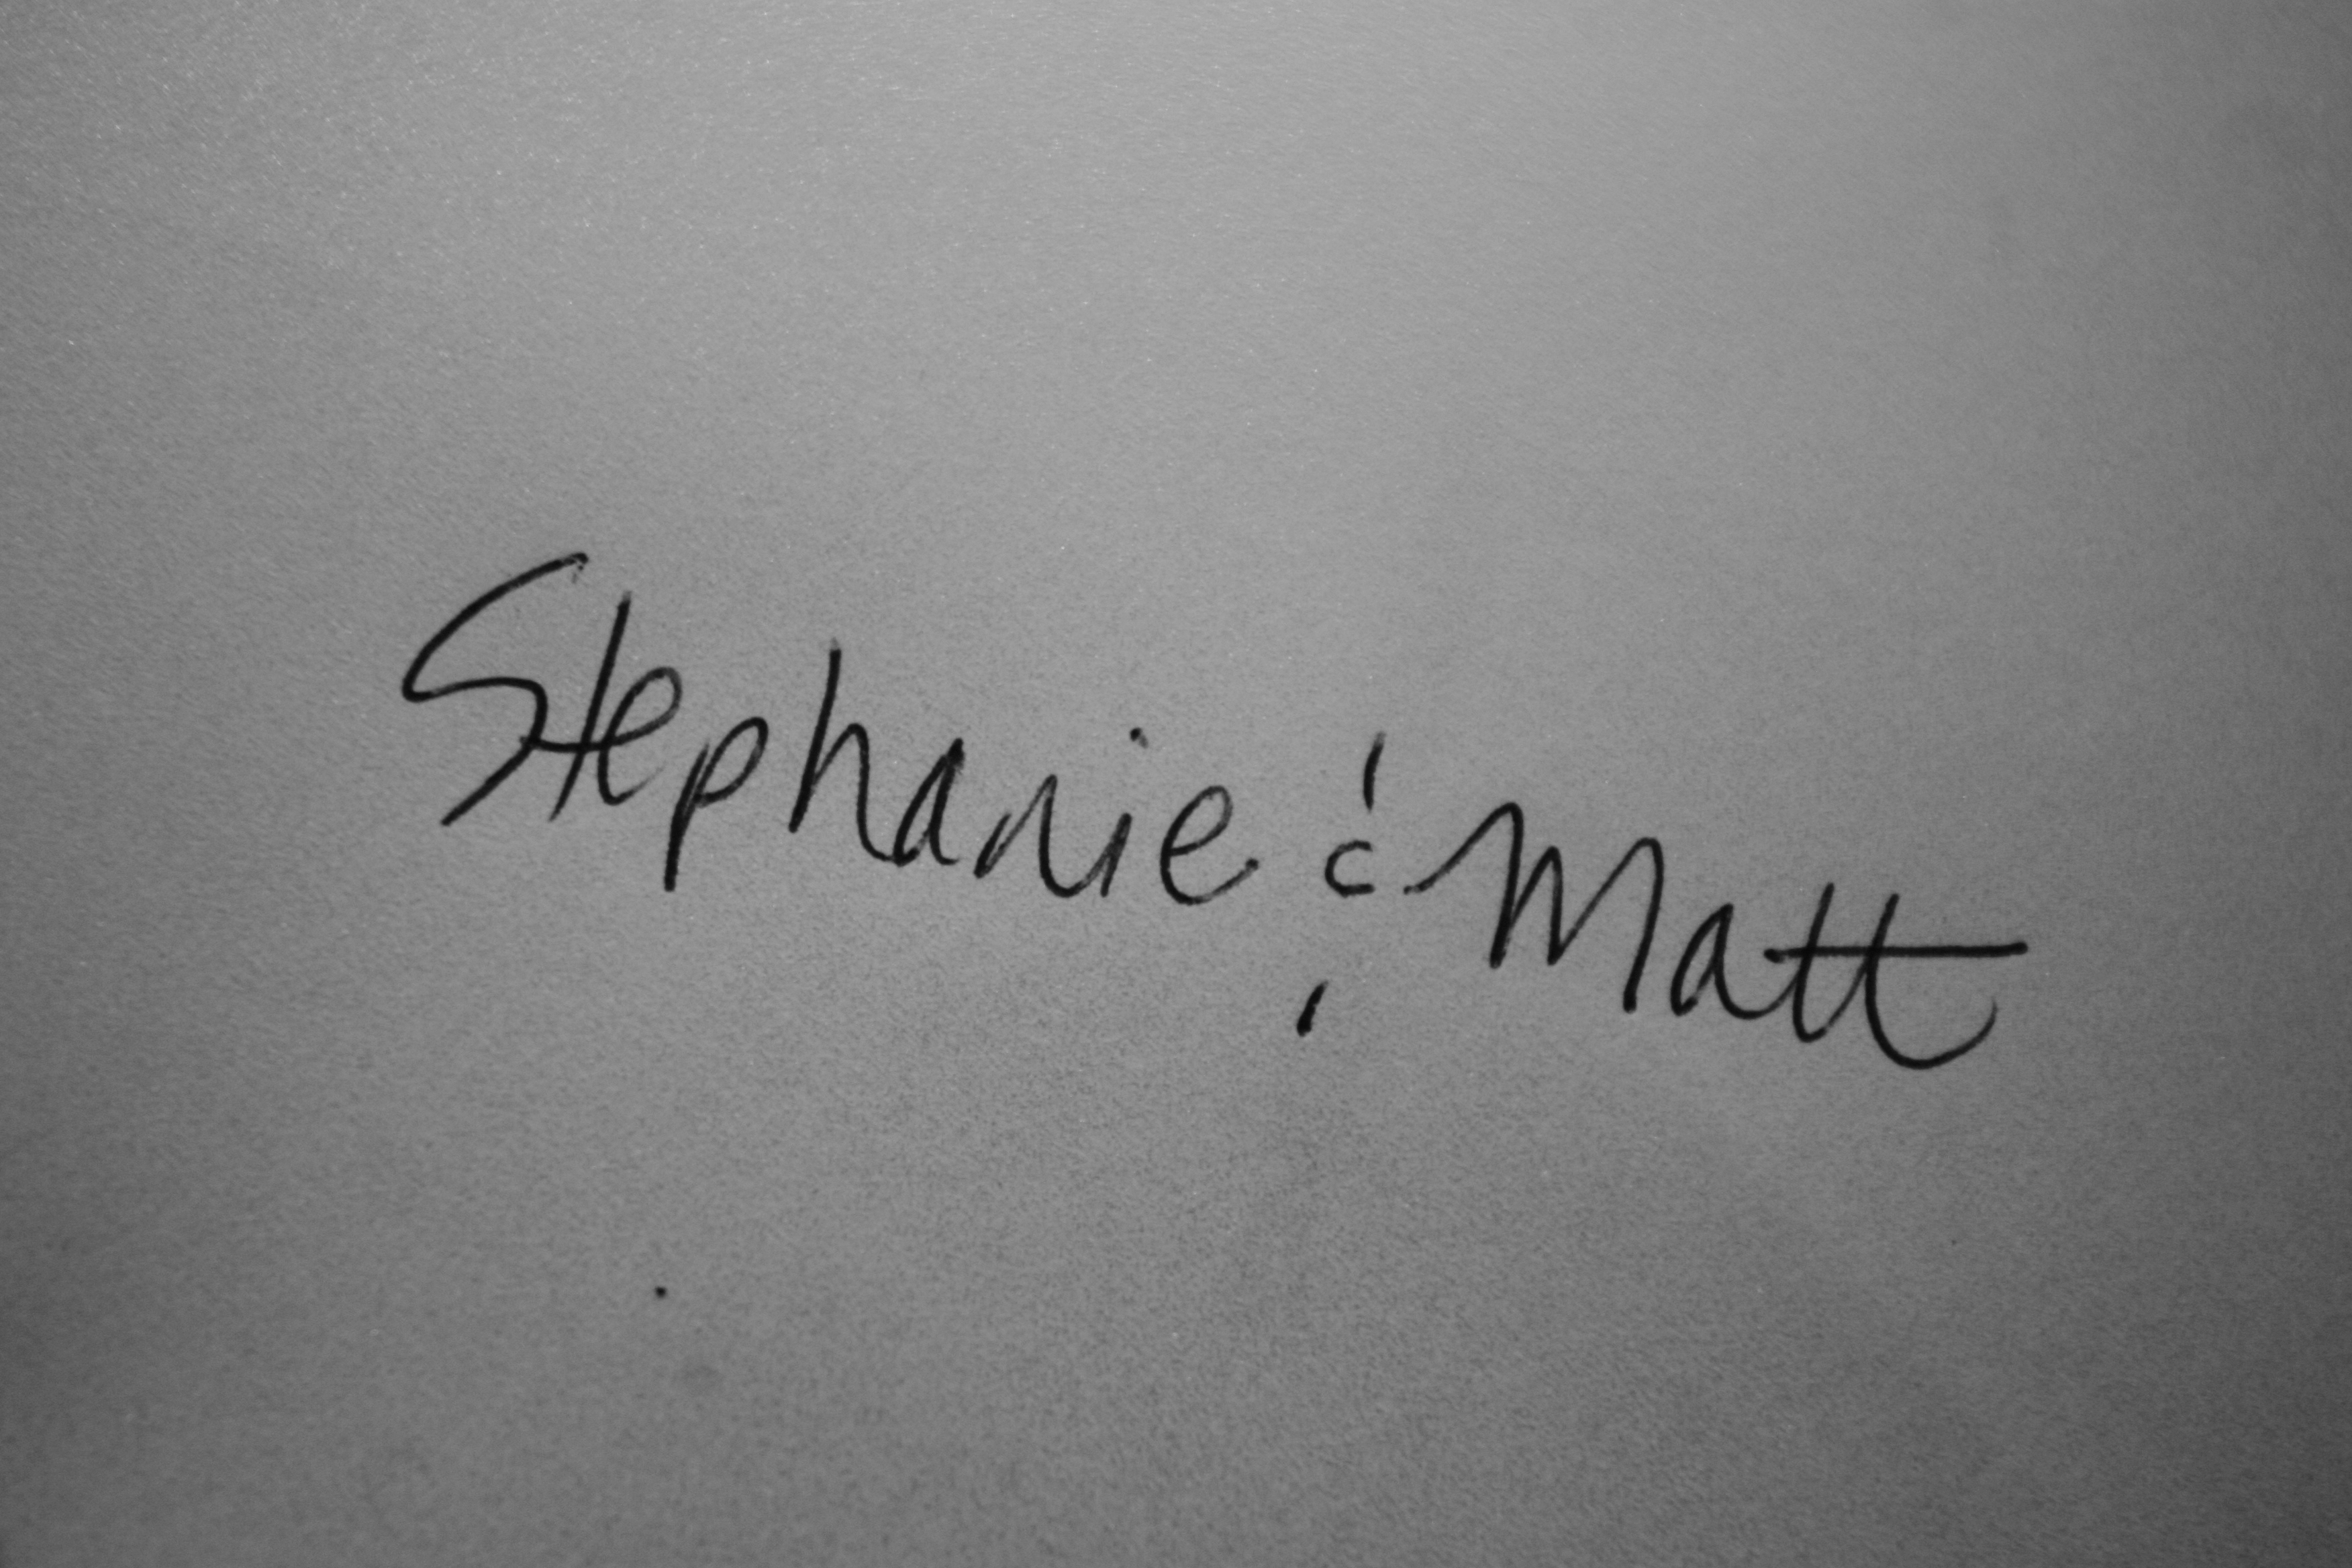 Stephanie & Matt